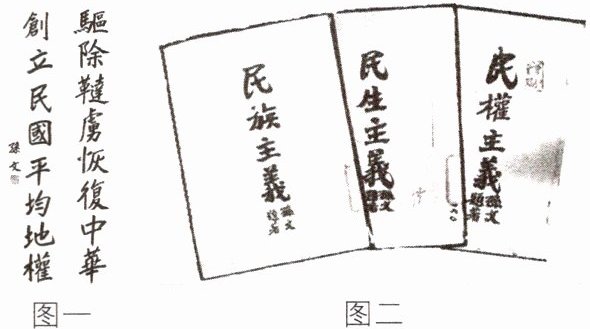 驅除韃虜恢復中華
創立民國平均地權
孫文
民族主義
孫文
民生主義
孫文
民權主義
孫文
图一
图二